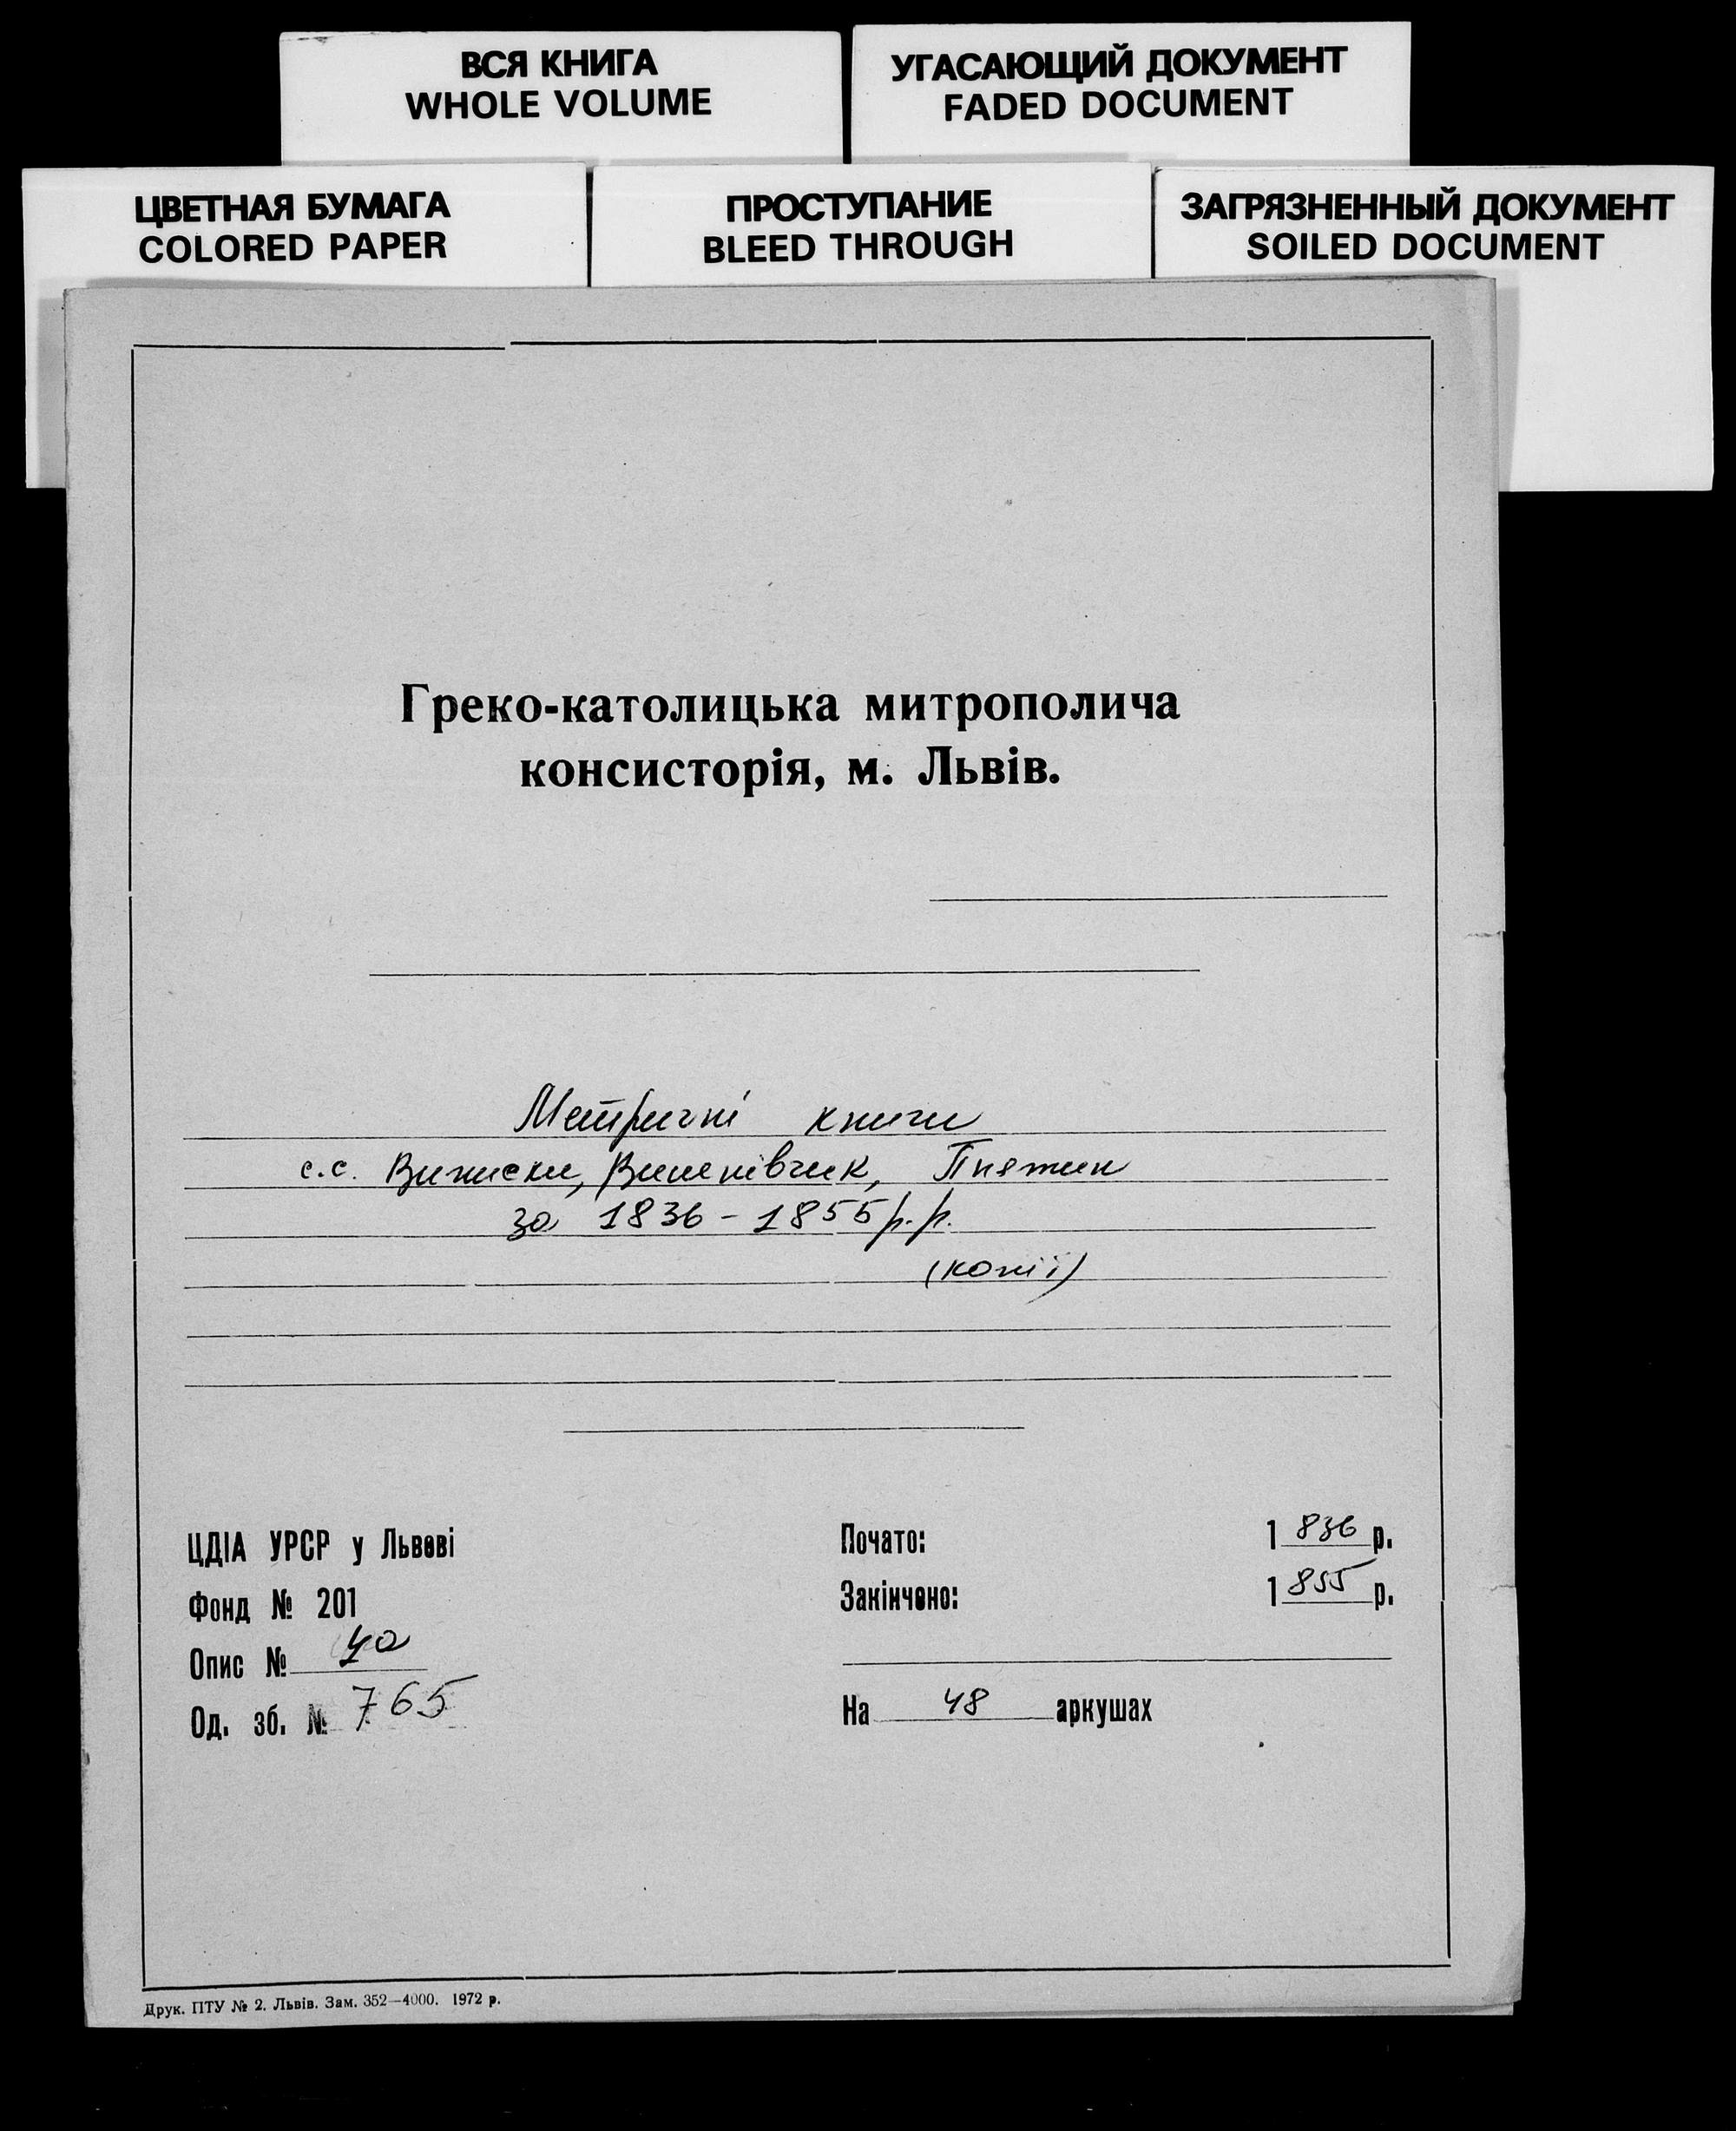 ВСЯ КНИГА
WHOLE VOLUME
УГАСАЮЩИЙ ДОКУМЕНТ
FADED DOCUMENT
ЦВЕТНАЯ БУМАГА
COLORED PAPER
ПРОСТУПАНИЕ
BLEED THROUGH
ЗАГРЯЗНЕННЫЙ ДОКУМЕНТ
SOILED DOCUMENT
Греко-католицька митрополича
консисторія, м. Львів.
Метричні книги
с.с. Виписки, Вишнівчик, Пнятин
за 1836 - 1855 р.р.
(копії)
ЦДІА УРСР у Львові
Фонд № 201
Опис № 4а
Од. зб. № 765
Почато: 1836 р.
Закінчено: 1855 р.
На 48 аркушах
Друк. ПТУ № 2. Львів. Зам. 352—4000. 1972 р.